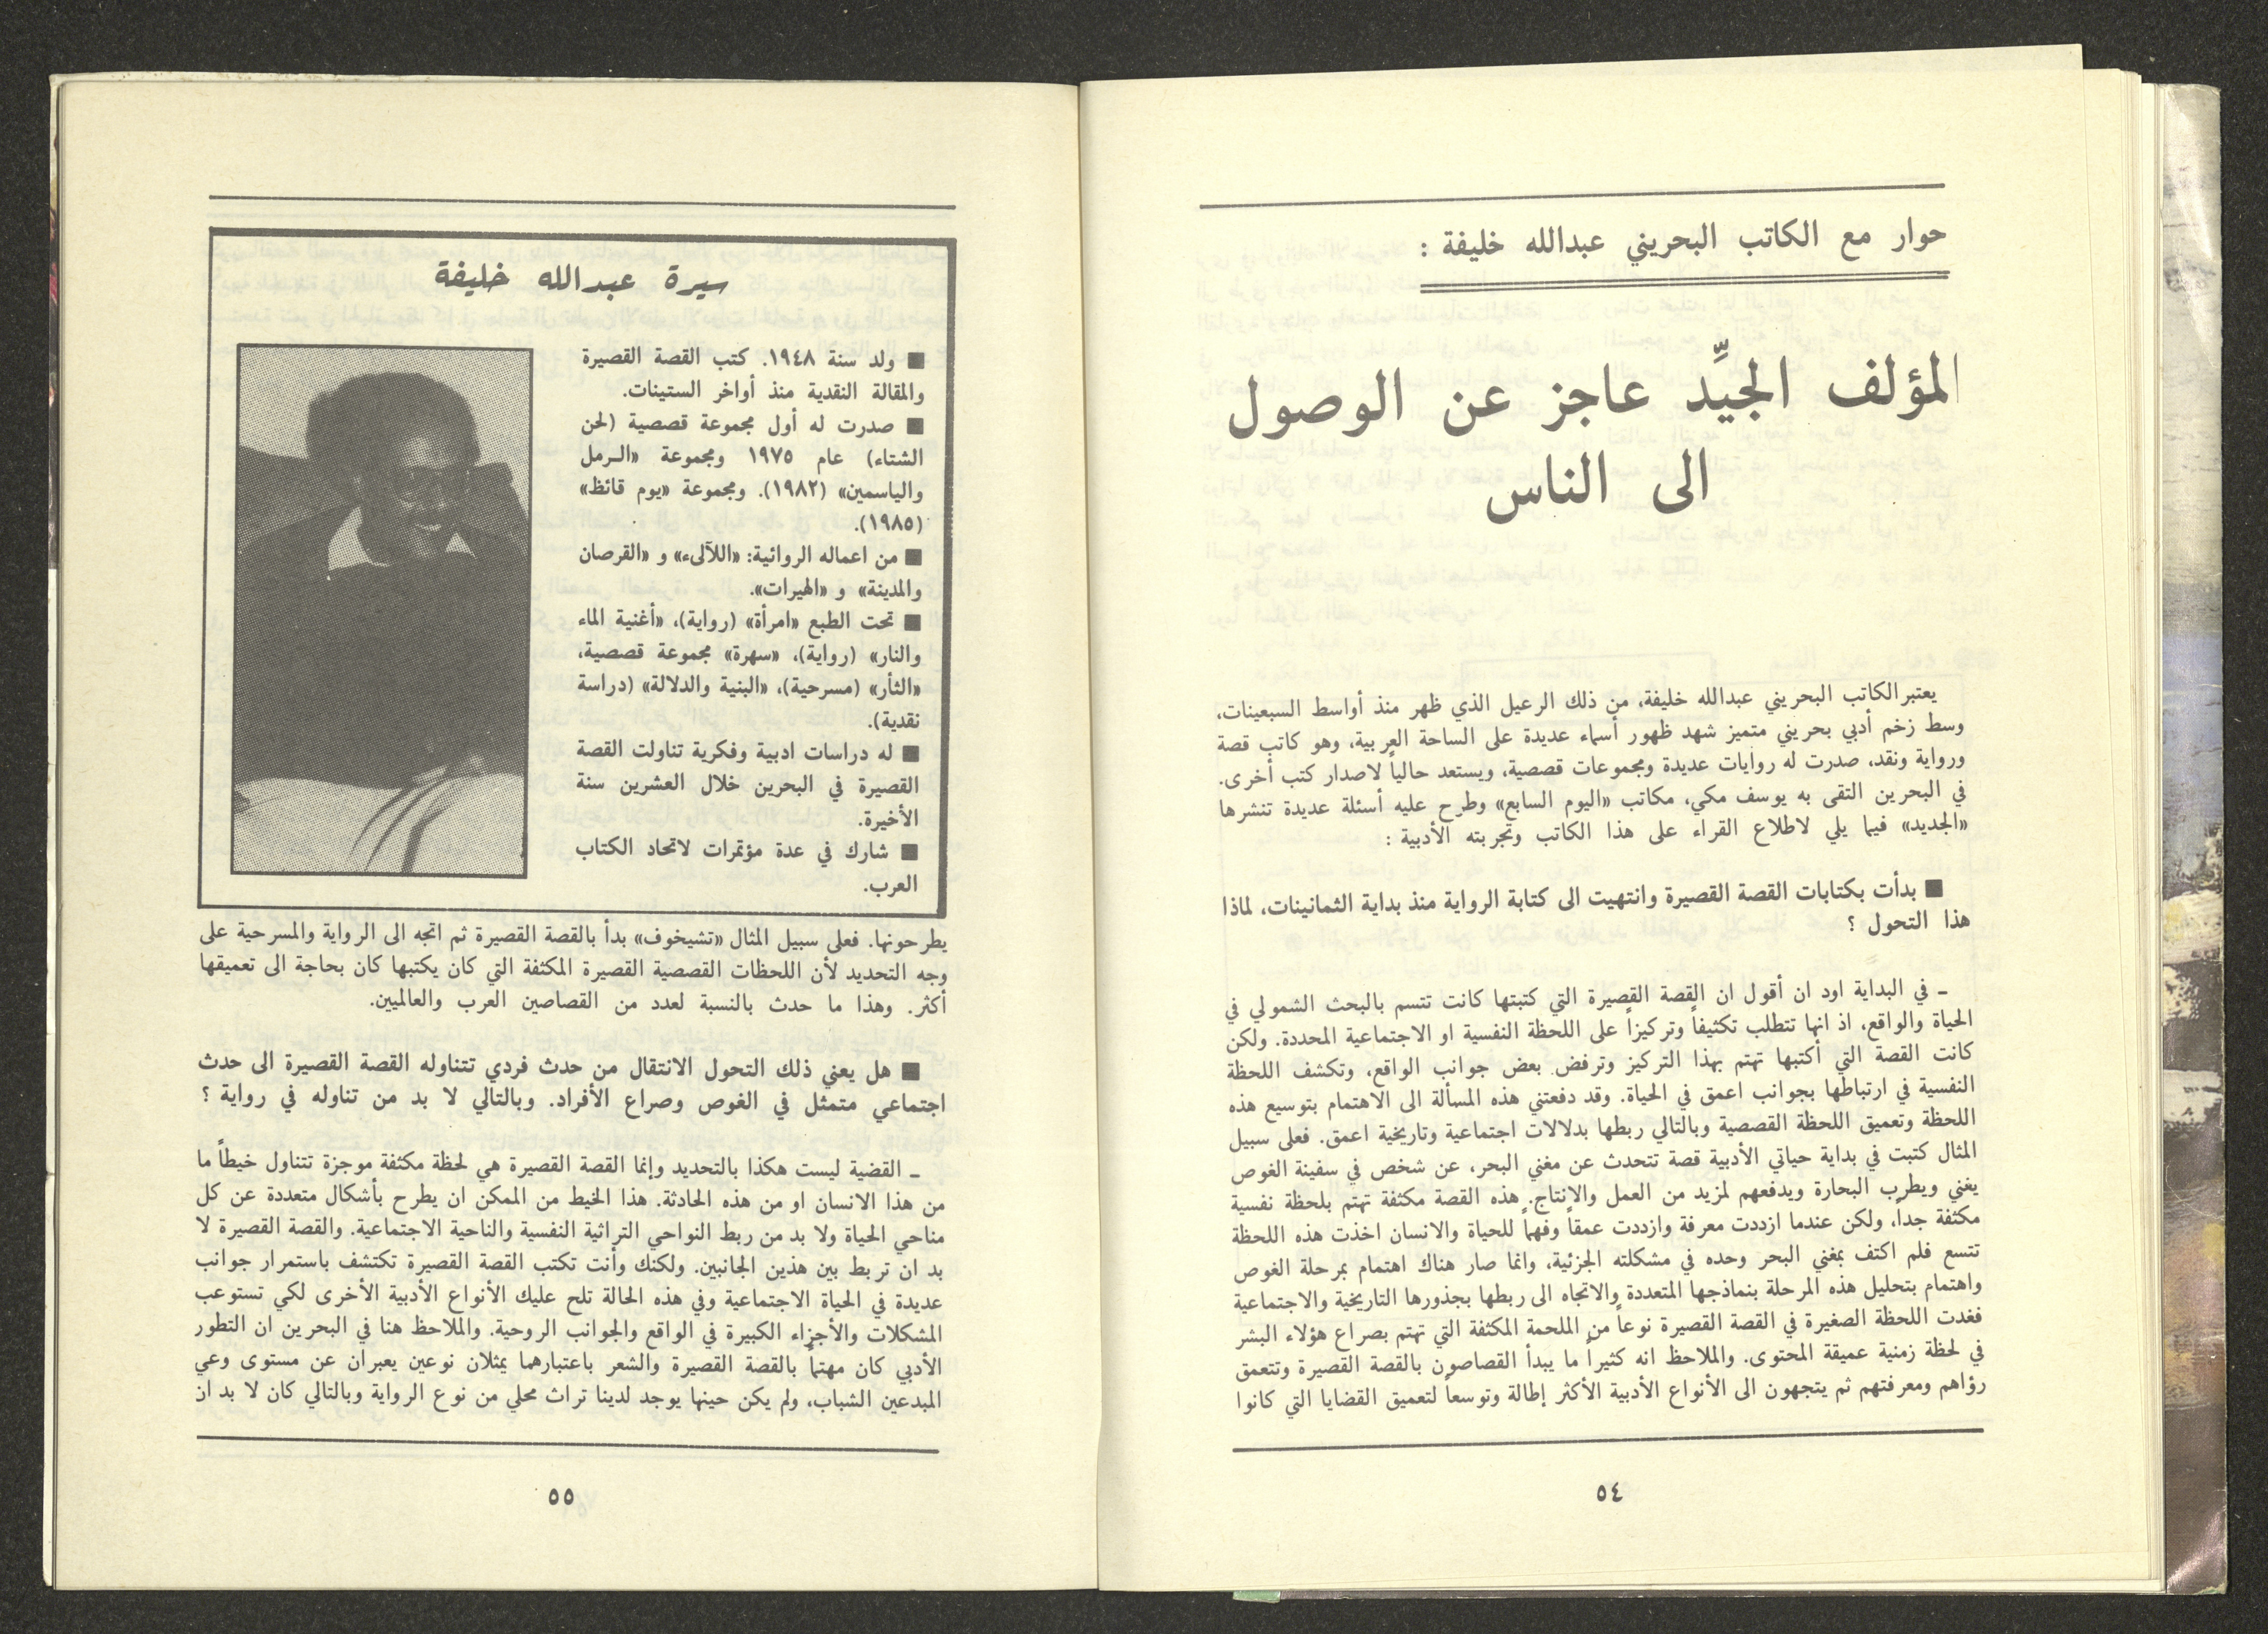 حوار مع الكاتب البحريني عبدالله خليفة :
المؤلف الجيِّد عاجز عن الوصول
الى الناس
يعتبر الكاتب البحريني عبدالله خليفة، من ذلك الرعيل الذي ظهر منذ أواسط السبعينات،
وسط زخم أدبي بحريني متميز شهد ظهور أسماء عديدة على الساحة العربية، وهو كاتب قصة
ورواية ونقد، صدرت له روايات عديدة ومجموعات قصصية، ويستعد حالياً لاصدار كتب أخرى.
في البحرين التقى به يوسف مكي، مكاتب «اليوم السابع» وطرح عليه أسئلة عديدة تنشرها
«الجديد» فيما يلي لاطلاع القراء على هذا الكاتب وتجربته الأدبية :
■ بدأت بكتابات القصة القصيرة وانتهيت الى كتابة الرواية منذ بداية الثمانينات، لماذا
هذا التحول ؟
ـ في البداية اود ان أقول ان القصة القصيرة التي كتبتها كانت تتسم بالبحث الشمولي في
الحياة والواقع، اذ انها تتطلب تكثيفاً وتركيزاً على اللحظة النفسية او الاجتماعية المحددة. ولكن
كانت القصة التي أكتبها تهتم بهذا التركيز وترفض بعض جوانب الواقع، وتكشف اللحظة
النفسية في ارتباطها بجوانب اعمق في الحياة. وقد دفعتني هذه المسألة الى الاهتمام بتوسيع هذه
اللحظة وتعميق اللحظة القصصية وبالتالي ربطها بدلالات اجتماعية وتاريخية اعمق. فعلى سبيل
المثال كتبت في بداية حياتي الأدبية قصة تتحدث عن مغني البحر، عن شخص في سفينة الغوص
يغني ويطرب البحارة ويدفعهم لمزيد من العمل والانتاج. هذه القصة مكثفة تهتم بلحظة نفسية
مكثفة جداً، ولكن عندما ازددت معرفة وازددت عمقاً وفهماً للحياة والانسان اخذت هذه اللحظة
تتسع فلم اكتف بمغني البحر وحده في مشكلته الجزئية، وانما صار هناك اهتمام بمرحلة الغوص
واهتمام بتحليل هذه المرحلة بنماذجها المتعددة والاتجاه الى ربطها بجذورها التاريخية والاجتماعية
فغدت اللحظة الصغيرة في القصة القصيرة نوعاً من الملحمة المكثفة التي تهتم بصراع هؤلاء البشر
في لحظة زمنية عميقة المحتوى. والملاحظ انه كثيراً ما يبدأ القصاصون بالقصة القصيرة وتتعمق
رؤاهم ومعرفتهم ثم يتجهون الى الأنواع الأدبية الأكثر إطالة وتوسعاً لتعميق القضايا التي كانوا
٥٤
سيرة عبدالله خليفة
■ ولد سنة ١٩٤٨. كتب القصة القصيرة
والمقالة النقدية منذ أواخر الستينات.
■ صدرت له أول مجموعة قصصية (لحن
الشتاء) عام ١٩٧٥ ومجموعة «الـرمل
والياسمين» (١٩٨٢). ومجموعة «يوم قائظ»
(١٩٨٥).
■ من اعماله الروائية: «اللآلىء» و «القرصان
والمدينة» و «الهيرات».
■ تحت الطبع «امرأة» (رواية)، «أغنية الماء
والنار» (رواية)، «سهرة» مجموعة قصصية،
«الثأر» (مسرحية)، «البنية والدلالة» (دراسة
نقدية).
■ له دراسات ادبية وفكرية تناولت القصة
القصيرة في البحرين خلال العشرين سنة
الأخيرة.
■ شارك في عدة مؤتمرات لاتحاد الكتاب
العرب.
يطرحونها. فعلى سبيل المثال «تشيخوف» بدأ بالقصة القصيرة ثم اتجه الى الرواية والمسرحية على
وجه التحديد لأن اللحظات القصصية القصيرة المكثفة التي كان يكتبها كان بحاجة الى تعميقها
أكثر. وهذا ما حدث بالنسبة لعدد من القصاصين العرب والعالميين.
■ هل يعني ذلك التحول الانتقال من حدث فردي تتناوله القصة القصيرة الى حدث
اجتماعي متمثل في الغوص وصراع الأفراد. وبالتالي لا بد من تناوله في رواية ؟
ـ القضية ليست هكذا بالتحديد وإنما القصة القصيرة هي لحظة مكثفة موجزة تتناول خيطاً ما
من هذا الانسان او من هذه الحادثة. هذا الخيط من الممكن ان يطرح بأشكال متعددة عن كل
مناحي الحياة ولا بد من ربط النواحي التراثية النفسية والناحية الاجتماعية. والقصة القصيرة لا
بد ان تربط بين هذين الجانبين. ولكنك وأنت تكتب القصة القصيرة تكتشف باستمرار جوانب
عديدة في الحياة الاجتماعية وفي هذه الحالة تلح عليك الأنواع الأدبية الأخرى لكي تستوعب
المشكلات والأجزاء الكبيرة في الواقع والجوانب الروحية. والملاحظ هنا في البحرين ان التطور
الأدبي كان مهتماً بالقصة القصيرة والشعر باعتبارهما يمثلان نوعين يعبران عن مستوى وعي
المبدعين الشباب، ولم يكن حينها يوجد لدينا تراث محلي من نوع الرواية وبالتالي كان لا بد ان
٥٥